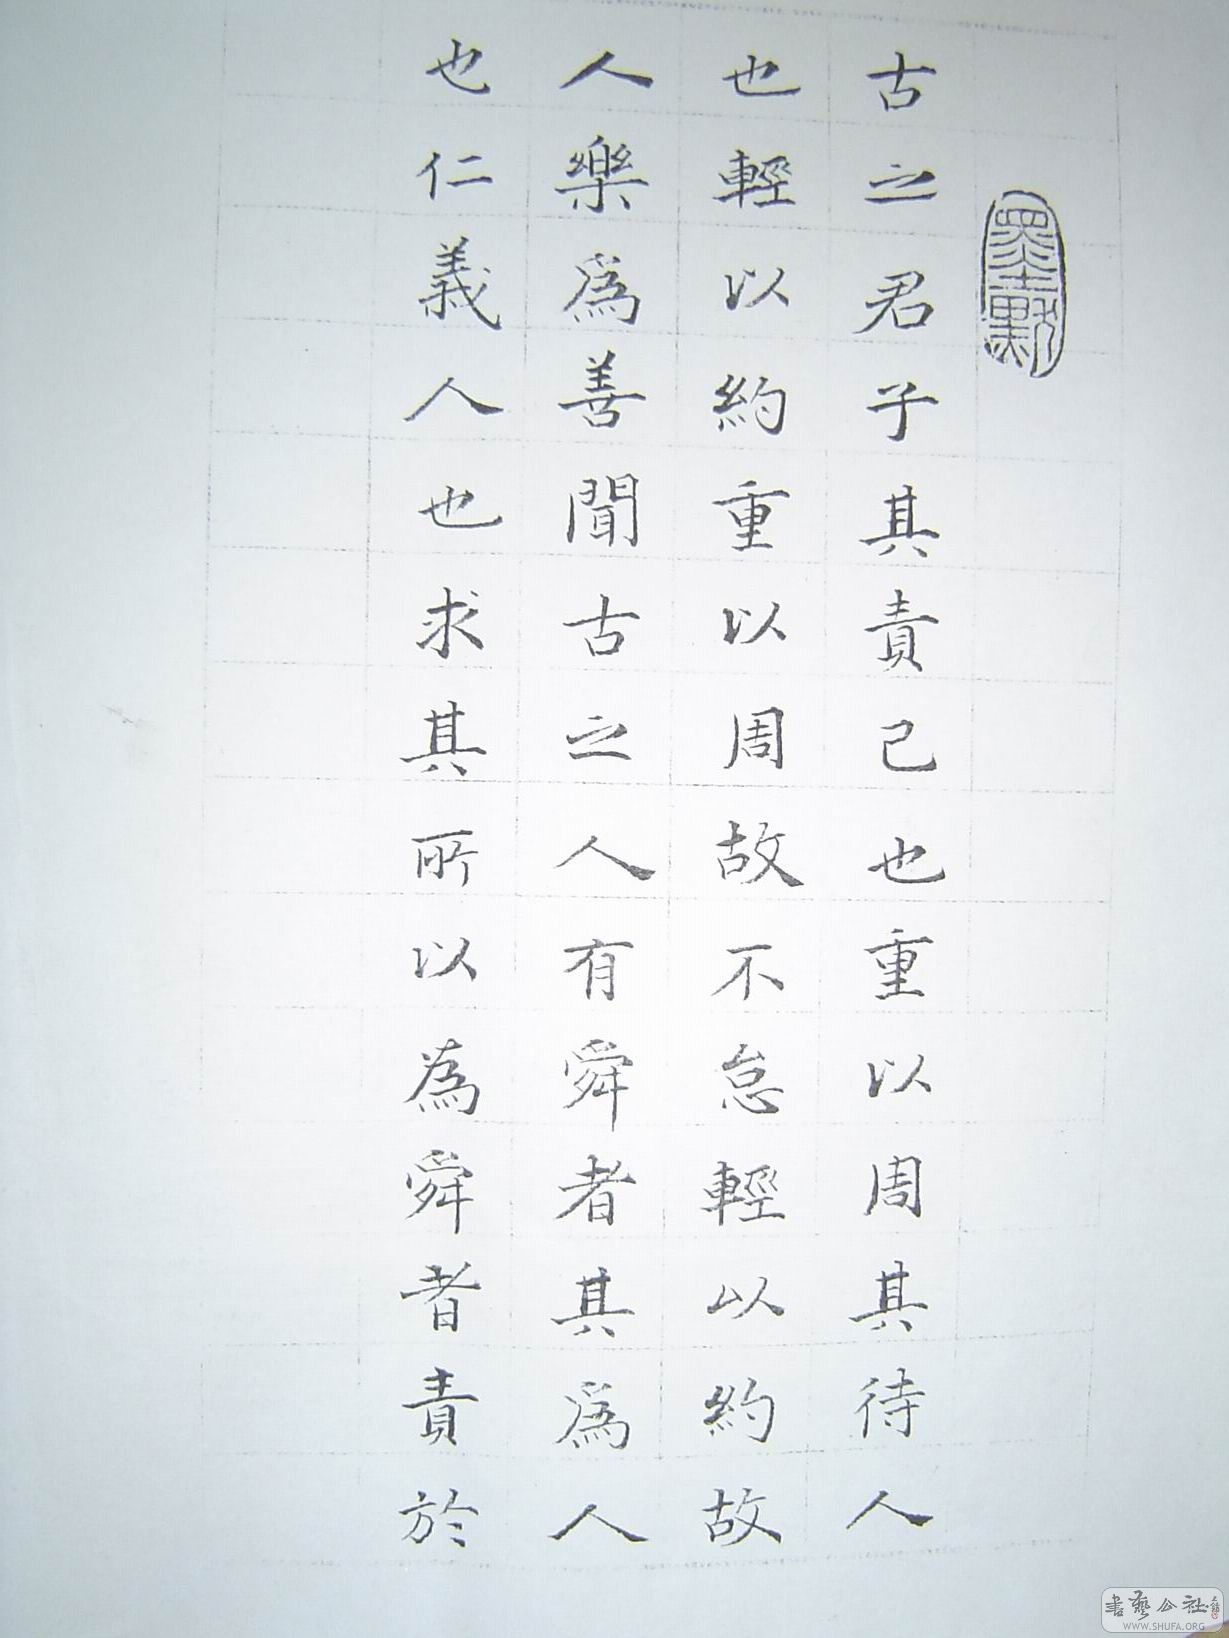 墨默
古之君子其責己也重以周其待人
也輕以約重以周故不怠輕以約故
人樂為善聞古之人有舜者其為人
也仁義人也求其所以為舜者責於
書藝公社
WWW.SHUFA.ORG